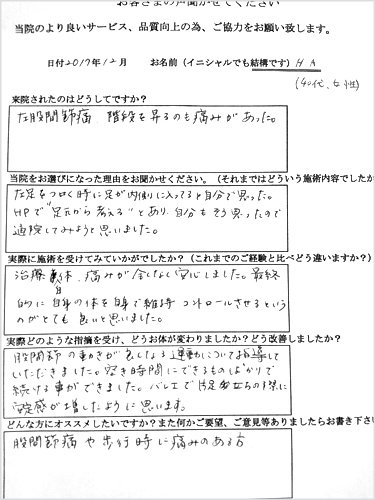 お客さまの声聞かせてください
当院のより良いサービス、品質向上の為、ご協力をお願い致します。
日付2017年12月 お名前（イニシャルでも結構です）H A
(40代、女性)
来院されたのはどうしてですか？
左股関節痛 階段を昇るのも痛みがあった。
当院をお選びになった理由をお聞かせください。（それまではどういう施術内容でしたか
左足をつく時に足が内側に入ってると自分で思った。
HPで“足元から考える”とあり、自分もそう思ったので
通院してみようと思いました。
実際に施術を受けてみていかがでしたか？（これまでのご経験と比べどう違いますか？）
治療自体、痛みが全くなく安心しました。最終
的に自身の体を自身で維持 コントロールさせるという
のがとても良いと思いました。
実際どのような指摘を受け、どうお体が変わりましたか？どう改善しましたか？
股関節の動きが良くなる運動について指導して
いただきました。空き時間にできるものばかりで
続ける事ができました。バレエで片足立ちの際に
安定感が増したように思います。
どんな方にオススメしたいですか？また何かご要望、ご意見等ありましたらお書き下さい
股関節痛や歩行時に痛みのある方